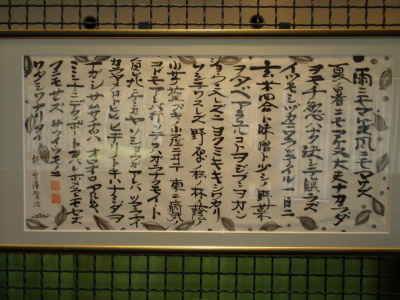 雨ニモマケズ風ニモマケズ
夏ノ暑サニモマケヌ丈夫ナカラダ
ヲモチ慾ハナク決シテ瞋ラズ
イツモシヅカニワラッテイル一日ニ
玄米四合ト味噌ト少シノ野菜
ヲタベアラユルコトヲジブンヲカン
ジョウニ入レズニヨクミキキシワカリ
ソシテワスレズ野原ノ松ノ林ノ蔭ノ
小サナ萱ブキノ小屋ニヰテ東ニ病気ノ
コドモアレバ行ッテコワガラナクテモイヽト
ケンクヮヤソショウガアレバツマラナイ
カラヤメロトイヒヒデリノトキハナミダヲ
ナガシサムサノナツハオロオロアルキ
ミンナニデクノボートヨバレホメラレモセズ
クニモサレズサウイフモノニ
ワタシハナリタイ
詩 宮澤賢治